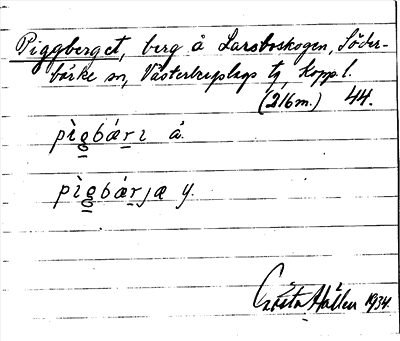 Piggberget, berg å Larsboskogen, Söder-
bärke sn, Västerbergslags tg, Koppl.
(216m.) 44.
pìgbárı å.
pìgbárjæ y.
Gösta Hallén 1934.